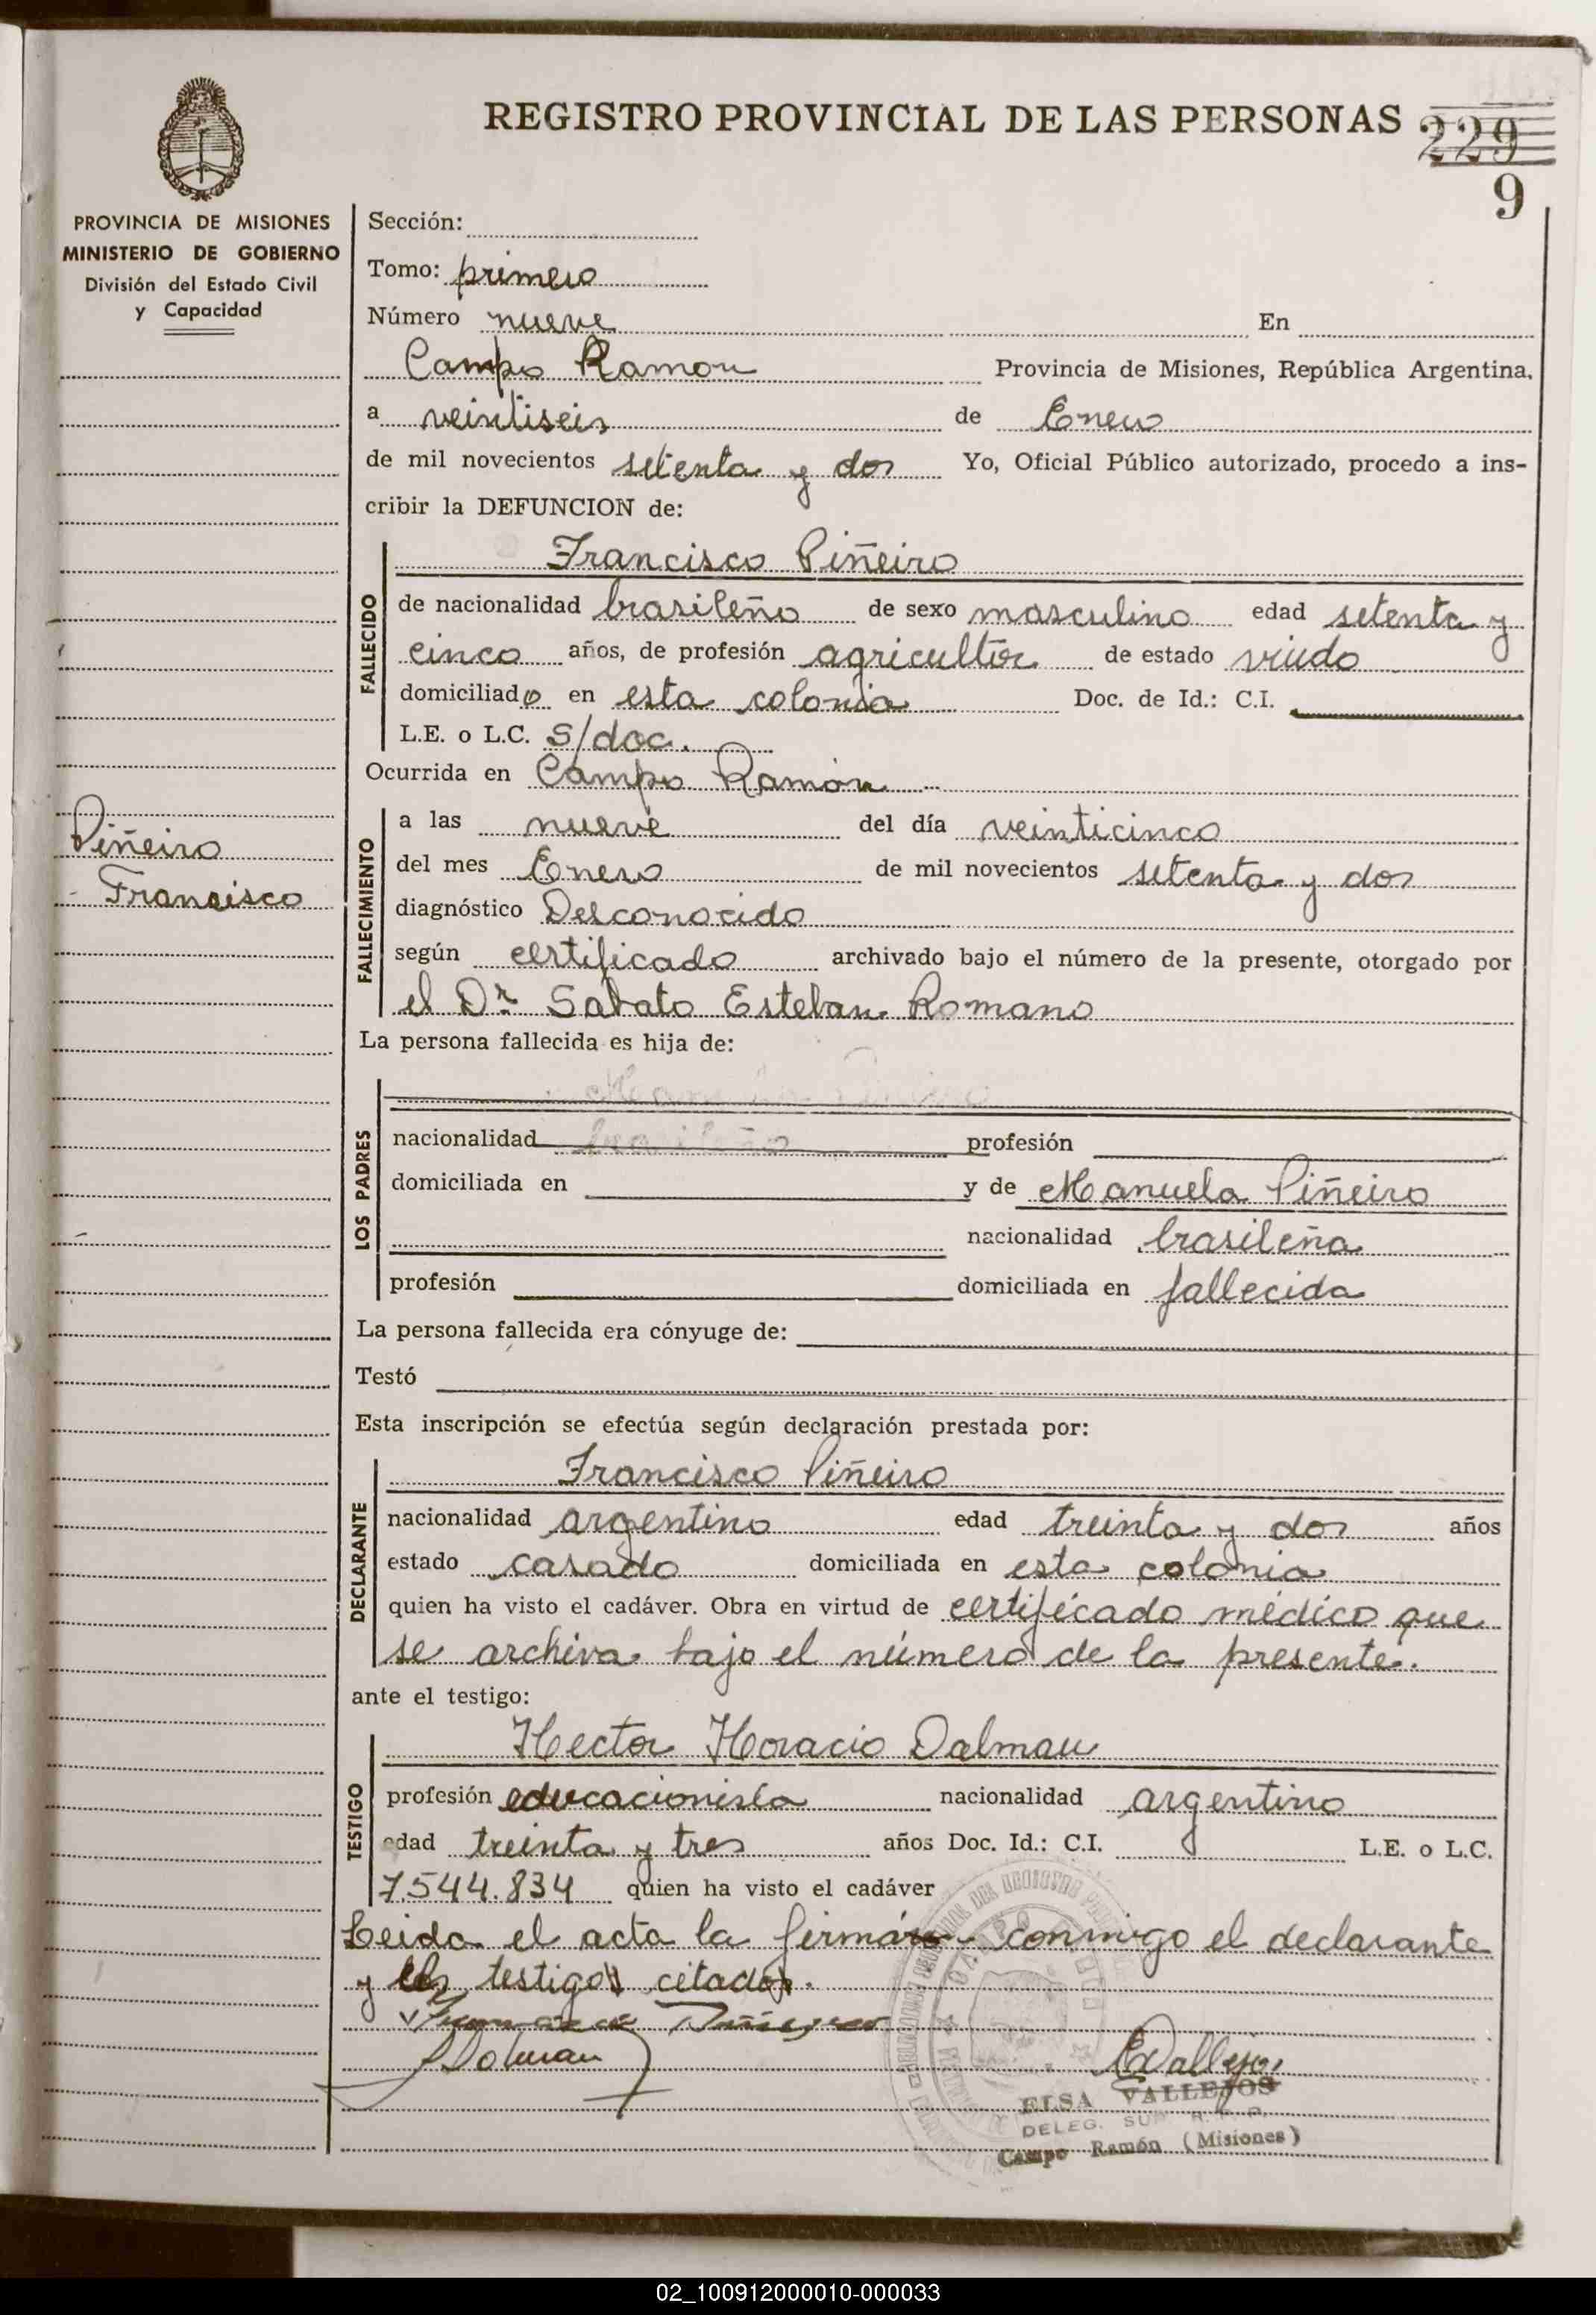 REGISTRO PROVINCIAL DE LAS PERSONAS
229
9
PROVINCIA DE MISIONES
MINISTERIO DE GOBIERNO
División del Estado Civil
y Capacidad
Piñeiro
Francisco
Sección:
Tomo: primero
Número nueve En
Campo Ramon Provincia de Misiones, República Argentina,
a veintiseis de Enero
de mil novecientos setenta y dos Yo, Oficial Público autorizado, procedo a ins-
cribir la DEFUNCION de:
FALLECIDO
Francisco Piñeiro
de nacionalidad brasileño de sexo masculino edad setenta y
cinco años, de profesión agricultor de estado viudo
domiciliado en esta colonia Doc. de Id.: C.I.
L.E. o L.C. S/doc.
Ocurrida en Campo Ramón
FALLECIMIENTO
a las nueve del día veinticinco
del mes Enero de mil novecientos setenta y dos
diagnóstico Desconocido
según certificado archivado bajo el número de la presente, otorgado por
el Dr. Sabato Esteban Romano
La persona fallecida es hija de:
LOS PADRES
nacionalidad brasileño profesión
domiciliada en y de Manuela Piñeiro
nacionalidad brasileña
profesión domiciliada en fallecida
La persona fallecida era cónyuge de:
Testó
Esta inscripción se efectúa según declaración prestada por:
DECLARANTE
Francisco Piñeiro
nacionalidad argentino edad treinta y dos años
estado casado domiciliada en esta colonia
quien ha visto el cadáver. Obra en virtud de certificado médico que
se archiva bajo el número de la presente.
ante el testigo:
TESTIGO
Hector Horacio Dalmau
profesión educacionista nacionalidad argentino
edad treinta y tres años Doc. Id.: C.I. L.E. o L.C.
7.544.834 quien ha visto el cadáver
Leida el acta la firman conmigo el declarante
y los testigos citados.
Dalmau
EVallejos
ELSA VALLEJOS
DELEG.
Campo Ramón (Misiones)
02_100912000010-000033